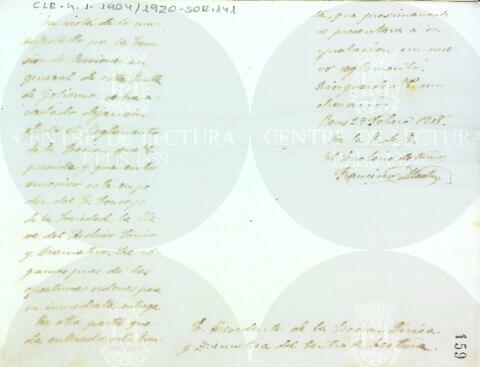 CLR-4.1-1904/1920-SOR:141
En vista de lo ma-
nifestado por la Comi-
sion de Sesiones en
general de esta Junta
de Gobierno se ha a-
cordado dejar sin
Reglamento
de la Seccion que V.
preside y que en lo
sucesivo este en po-
der del Sr. Conserje
de la Sociedad la lla-
ve del Archivo Lírico
y Dramatico. Le ro-
gamos pues dé las
oportunas ordenes para
su inmediata entrega.
Por otra parte que-
da enterada esta Jun-
ta, que proximamente
se presentara a su
aprobacion un nue-
vo reglamento.
Dios guarde a V. mu-
chos años.
Reus 29 Febrero 1908.
Por la J. de G.
El Secretario
Francisco
S. Presidente de la Seccion Lírica
y Dramatica del Centro de Lectura.
159
CENTRE DE LECTURA
REUS 1859
CENTRE DE LECTURA
REUS 1859